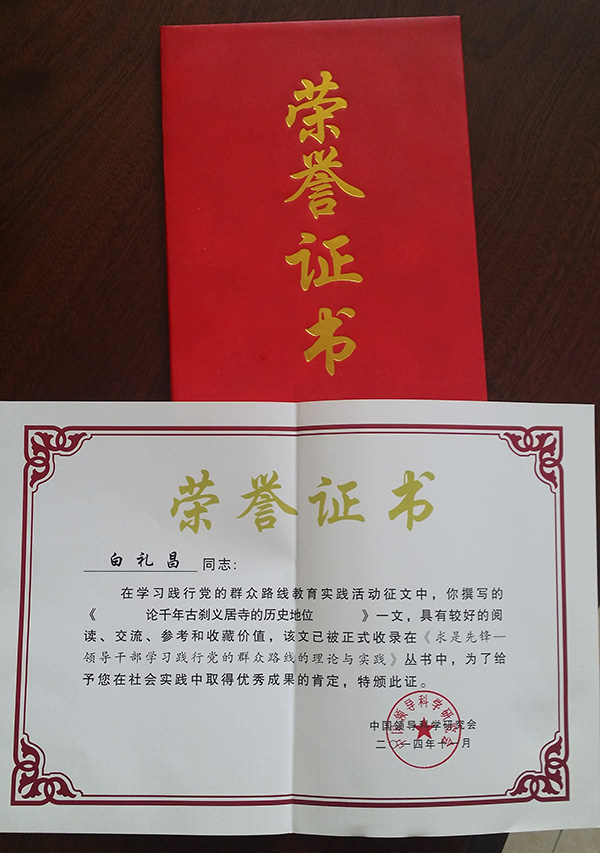 荣誉证书
荣誉证书
白礼昌 同志:
在学习践行党的群众路线教育实践活动征文中，你撰写的
《 论千年古刹义居寺的历史地位 》一文，具有较好的阅
读、交流、参考和收藏价值，该文已被正式收录在《求是先锋—
领导干部学习践行党的群众路线的理论与实践》丛书中，为了给
予您在社会实践中取得优秀成果的肯定，特颁此证。
中国领导科学研究会
二〇一四年十一月